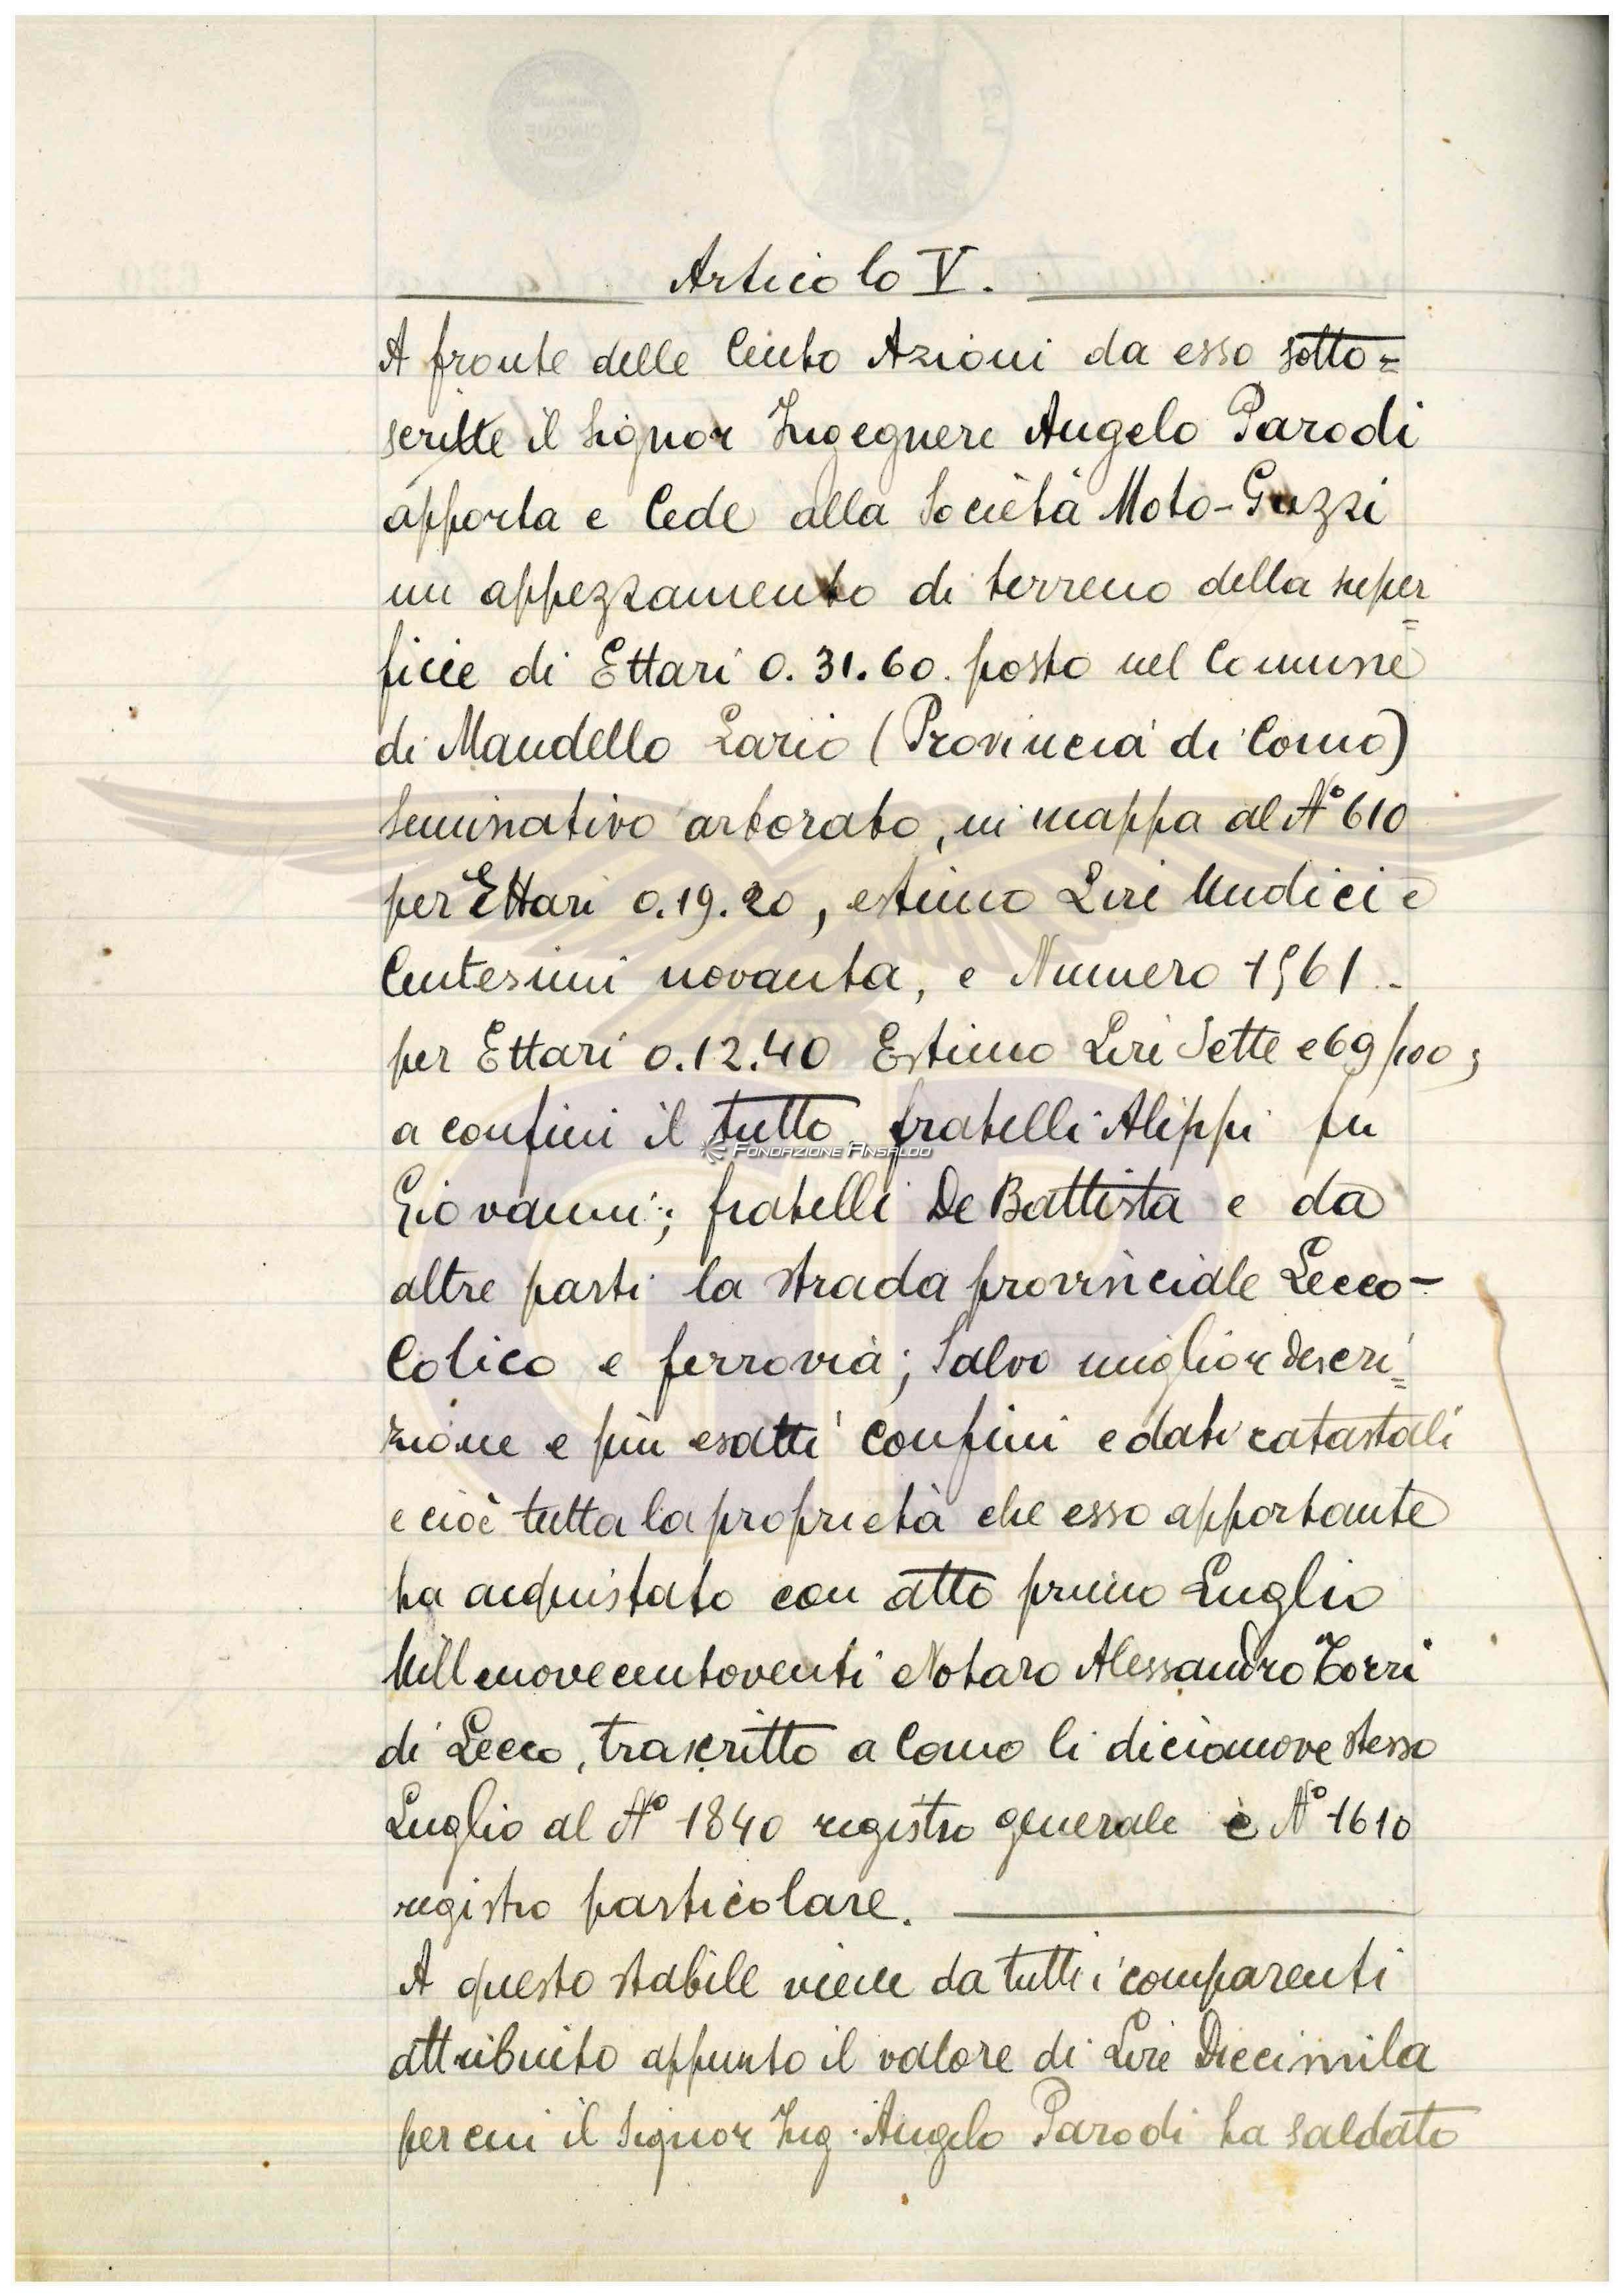 Articolo V.
A fronte delle Cento Azioni da esso sotto=
scritte il Signor Ingegnere Angelo Parodi
apporta e Cede alla Società Moto-Guzzi
un appezzamento di terreno della super
ficie di Ettari 0.31.60. posto nel Comune
di Mandello Lario (Provincia di Como)
Seminativo arborato, in mappa al N° 610
per Ettari 0.19.20, estimo Lire Undici e
Centesimi novanta, e Numero 1961.-
per Ettari 0.12.40 Estimo Lire Sette e 69/100;
a confini il tutto fratelli Alippi fu
FONDAZIONE ANSALDO
Giovanni; fratelli De Battista e da
altre parti la strada provinciale Lecco-
Colico e ferrovia; Salvo miglior descri=
zione e più esatti confini e dati catastali
e cioè tutta la proprietà che esso apportante
ha acquistato con atto primo Luglio
Millenovecentoventi Notaro Alessandro Torri
di Lecco, trascritto a Como li diecianove stesso
Luglio al N° 1840 registro generale e N° 1610
registro particolare.
A questo stabile viene da tutti i comparenti
attribuito appunto il valore di Lire Diecimila
per cui il Signor Ing. Angelo Parodi ha saldato